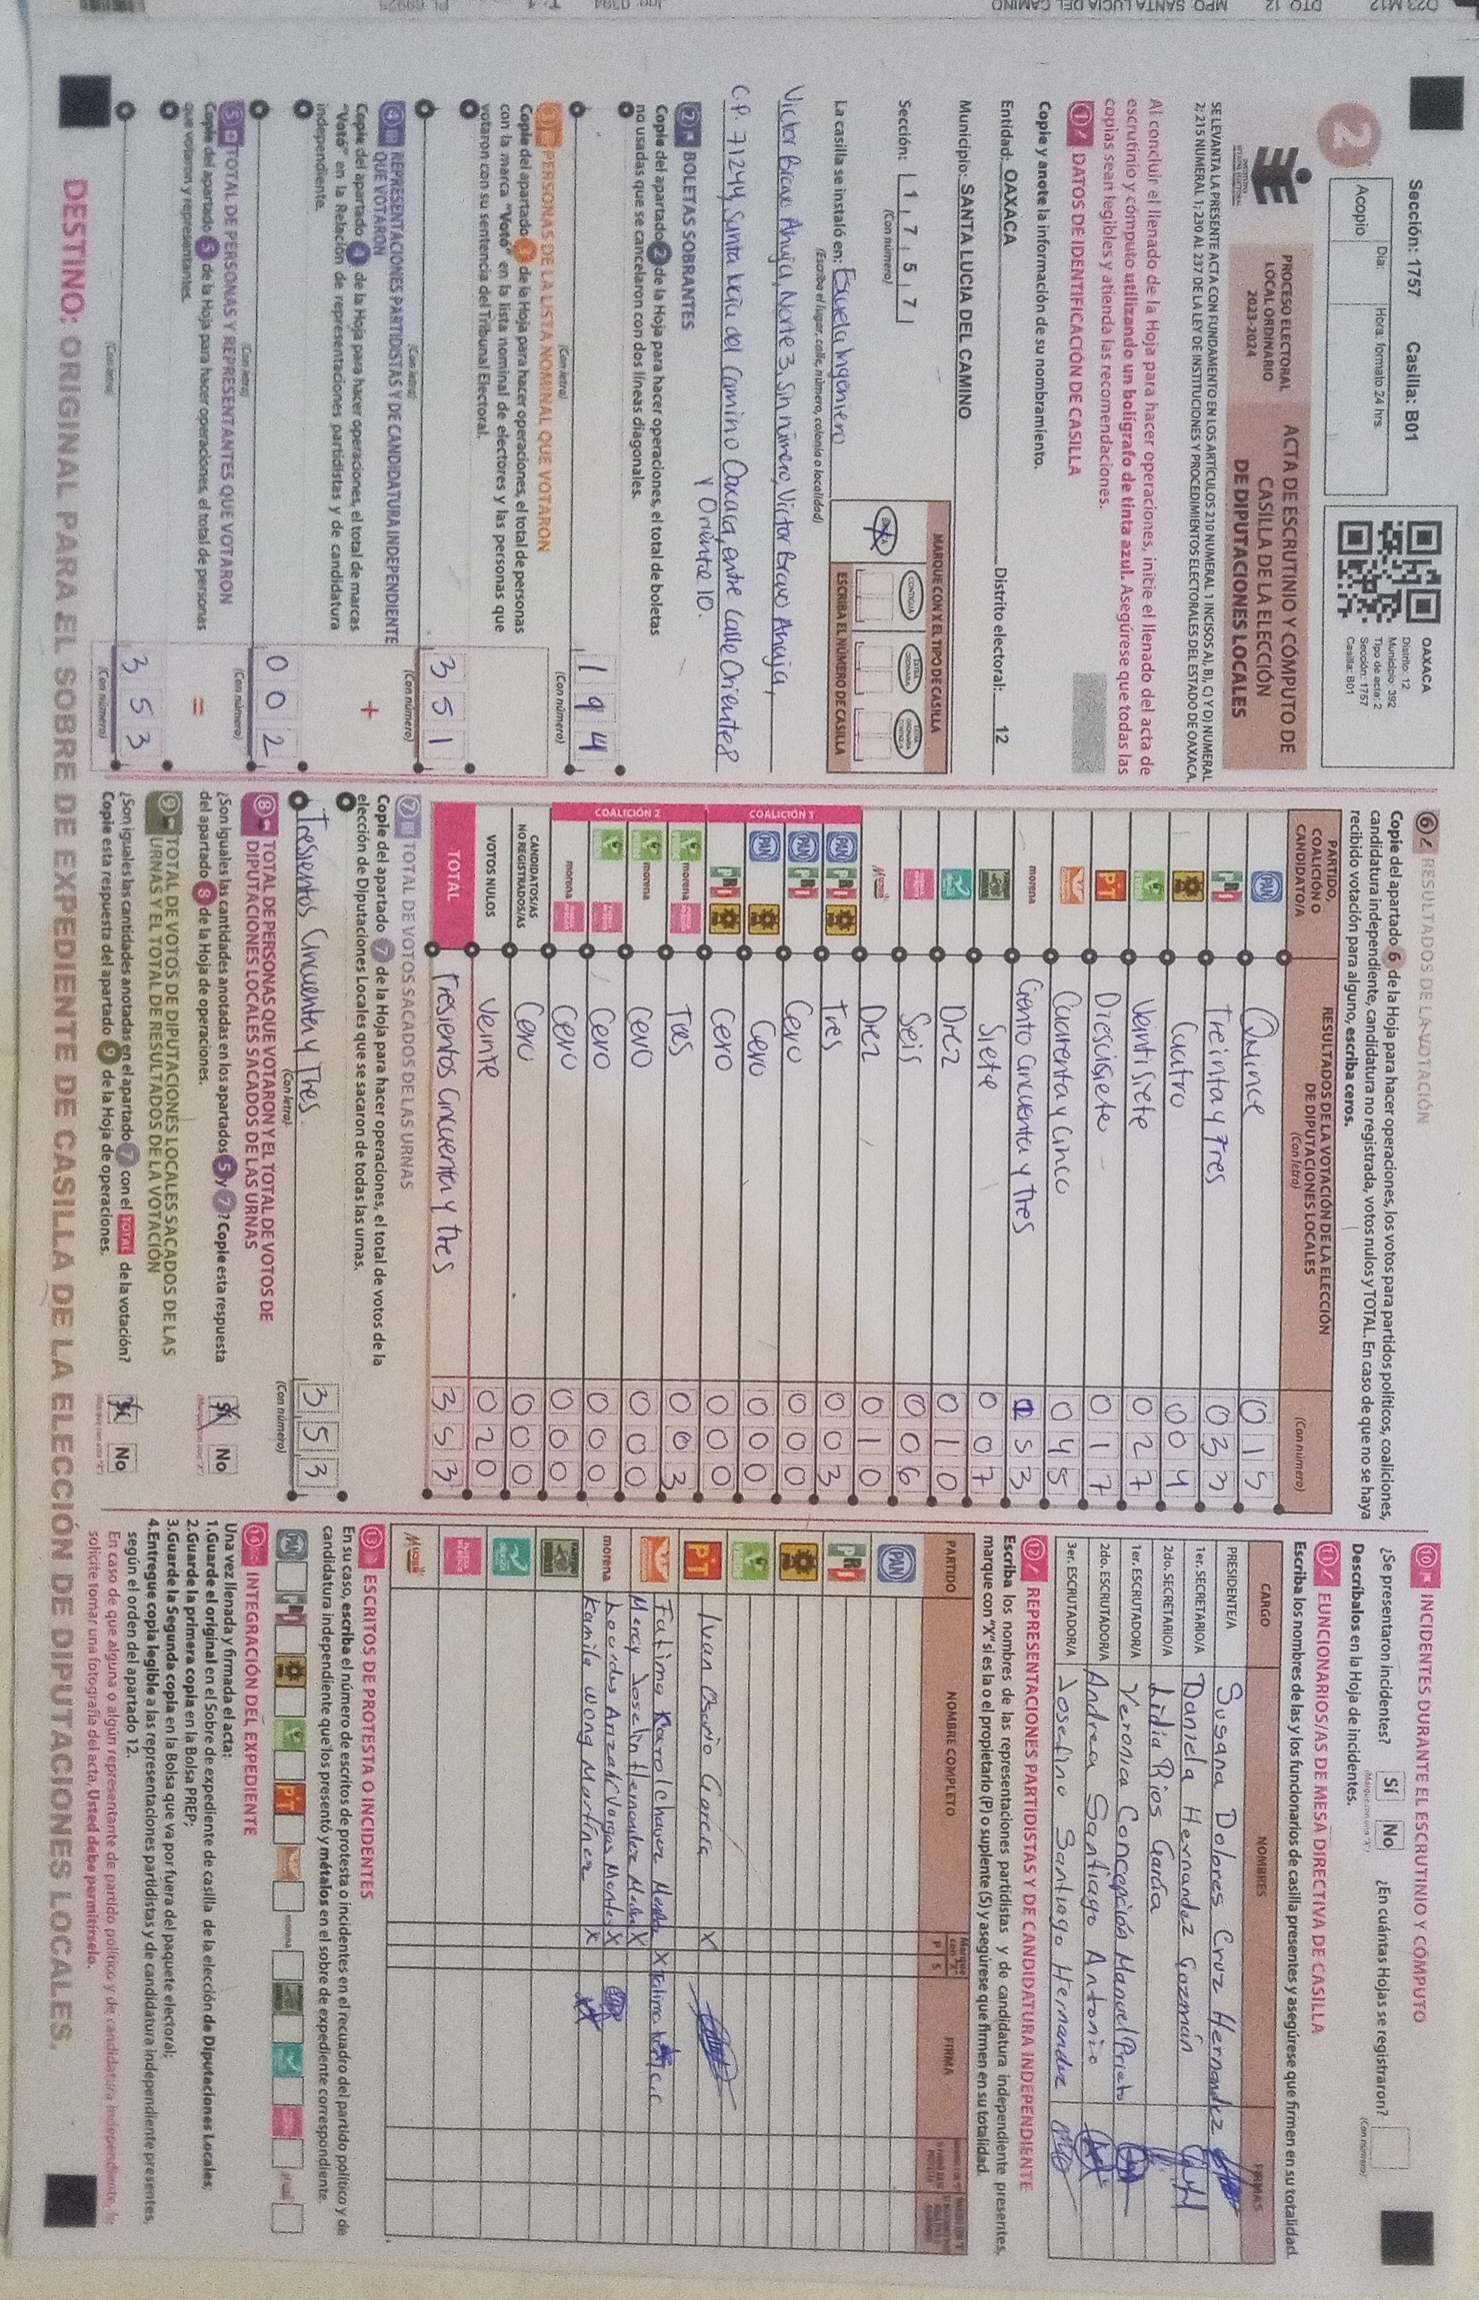 Sección: 1757 Casilla: B01
2
Día: Hora: formato 24 hrs.
Acopio
OAXACA
Distrito: 12
Municipio: 392
Tipo de acta: 2
Sección: 1757
Casilla: B01
PROCESO ELECTORAL
LOCAL ORDINARIO
2023-2024
ACTA DE ESCRUTINIO Y CÓMPUTO DE
CASILLA DE LA ELECCIÓN
DE DIPUTACIONES LOCALES
SE LEVANTA LA PRESENTE ACTA CON FUNDAMENTO EN LOS ARTÍCULOS 210 NUMERAL 1 INCISOS A), B), C) Y D) NUMERAL
2; 215 NUMERAL 1; 230 AL 237 DE LA LEY DE INSTITUCIONES Y PROCEDIMIENTOS ELECTORALES DEL ESTADO DE OAXACA.
Al concluir el llenado de la Hoja para hacer operaciones, inicie el llenado del acta de
escrutinio y cómputo utilizando un bolígrafo de tinta azul. Asegúrese que todas las
copias sean legibles y atienda las recomendaciones.
1 DATOS DE IDENTIFICACIÓN DE CASILLA
Copie y anote la información de su nombramiento.
Entidad: OAXACA Distrito electoral: 12
Municipio: SANTA LUCIA DEL CAMINO
Sección: 1 7 5 7
(Con número)
MARQUE CON X EL TIPO DE CASILLA
CONTIGUA
ESCRIBA EL NÚMERO DE CASILLA
La casilla se instaló en: Escuela Ingeniero
(Escriba el lugar, calle, número, colonia o localidad)
Victor Bravo Ahuja, Norte 3, Sin número, Victor Bravo Ahuja,
C.P. 71244, Santa Lucía del Camino Oaxaca, entre Calle Oriente 8
y Oriente 10.
2 BOLETAS SOBRANTES
Copie del apartado 2 de la Hoja para hacer operaciones, el total de boletas
no usadas que se cancelaron con dos líneas diagonales.
1 9 4
(Con letra) (Con número)
3 PERSONAS DE LA LISTA NOMINAL QUE VOTARON
Copie del apartado 3 de la Hoja para hacer operaciones, el total de personas
con la marca "Votó" en la lista nominal de electores y las personas que
votaron con su sentencia del Tribunal Electoral.
3 5 1
(Con letra) (Con número)
4 REPRESENTACIONES PARTIDISTAS Y DE CANDIDATURA INDEPENDIENTE
QUE VOTARON
Copie del apartado 4 de la Hoja para hacer operaciones, el total de marcas
"Votó" en la Relación de representaciones partidistas y de candidatura
independiente.
+
0 0 2
(Con letra) (Con número)
5 TOTAL DE PERSONAS Y REPRESENTANTES QUE VOTARON
Copie del apartado 5 de la Hoja para hacer operaciones, el total de personas
que votaron y representantes.
=
3 5 3
(Con letra) (Con número)
6 RESULTADOS DE LA VOTACIÓN
Copie del apartado 6 de la Hoja para hacer operaciones, los votos para partidos políticos, coaliciones,
candidatura independiente, candidatura no registrada, votos nulos y TOTAL. En caso de que no se haya
recibido votación para alguno, escriba ceros.
PARTIDO,
COALICIÓN O
CANDIDATO/A
RESULTADOS DE LA VOTACIÓN DE LA ELECCIÓN
DE DIPUTACIONES LOCALES
(Con letra)
(Con número)
PAN Quince 0 1 5
PRI Treinta y Tres 0 3 3
Cuatro 0 0 4
Veintisiete 0 2 7
PT Diescisiete 0 1 7
Cuarenta y Cinco 0 4 5
morena Ciento Cincuenta y Tres 1 5 3
Siete 0 0 7
Diez 0 1 0
Seis 0 0 6
Diez 0 1 0
COALICIÓN 1
PAN PRI Tres 0 0 3
PAN PRI Cero 0 0 0
PAN Cero 0 0 0
PRI Cero 0 0 0
COALICIÓN 2
morena Tres 0 0 3
morena Cero 0 0 0
Cero 0 0 0
morena Cero 0 0 0
CANDIDATOS/AS
NO REGISTRADOS/AS Cero 0 0 0
VOTOS NULOS Veinte 0 2 0
TOTAL Tresientos Cincuenta y tres 3 5 3
7 TOTAL DE VOTOS SACADOS DE LAS URNAS
Copie del apartado 7 de la Hoja para hacer operaciones, el total de votos de la
elección de Diputaciones Locales que se sacaron de todas las urnas.
Tresientos Cincuenta y Tres. 3 5 3
(Con letra) (Con número)
8 TOTAL DE PERSONAS QUE VOTARON Y EL TOTAL DE VOTOS DE
DIPUTACIONES LOCALES SACADOS DE LAS URNAS
¿Son iguales las cantidades anotadas en los apartados 5 y 7? Copie esta respuesta
del apartado 8 de la Hoja de operaciones.
Sí No
9 TOTAL DE VOTOS DE DIPUTACIONES LOCALES SACADOS DE LAS
URNAS Y EL TOTAL DE RESULTADOS DE LA VOTACIÓN
¿Son iguales las cantidades anotadas en el apartado 7 con el TOTAL de la votación?
Copie esta respuesta del apartado 9 de la Hoja de operaciones.
Sí No
10 INCIDENTES DURANTE EL ESCRUTINIO Y CÓMPUTO
¿Se presentaron incidentes? Sí No ¿En cuántas Hojas se registraron?
(Marque con una "X") (Con número)
Descríbalos en la Hoja de incidentes.
11 FUNCIONARIOS/AS DE MESA DIRECTIVA DE CASILLA
Escriba los nombres de las y los funcionarios de casilla presentes y asegúrese que firmen en su totalidad.
CARGO NOMBRES FIRMAS
PRESIDENTE/A Susana Dolores Cruz Hernandez
1er. SECRETARIO/A Daniela Hernandez Gozmán
2do. SECRETARIO/A Lidia Rios García
1er. ESCRUTADOR/A Veronica Concepción Manuel Prieto
2do. ESCRUTADOR/A Andrea Santiago Antonio
3er. ESCRUTADOR/A Josefino Santiago Hernandez
12 REPRESENTACIONES PARTIDISTAS Y DE CANDIDATURA INDEPENDIENTE
Escriba los nombres de las representaciones partidistas y de candidatura independiente presentes,
marque con "X" si es la o el propietario (P) o suplente (S) y asegúrese que firmen en su totalidad.
PARTIDO NOMBRE COMPLETO P S FIRMA
PAN
PRI
PT Ivan Osorio García X
Fatima Karol Chavez X
Mercy Joselin Hernandez X
morena Lourdes Arizahi Vargas Mendez X
Kamila Wong Martínez X
13 ESCRITOS DE PROTESTA O INCIDENTES
En su caso, escriba el número de escritos de protesta o incidentes en el recuadro del partido político y de
candidatura independiente que los presentó y métalos en el sobre de expediente correspondiente.
PAN PRI PT morena
14 INTEGRACIÓN DEL EXPEDIENTE
Una vez llenada y firmada el acta:
1.Guarde el original en el Sobre de expediente de casilla de la elección de Diputaciones Locales;
2.Guarde la primera copia en la Bolsa PREP;
3.Guarde la Segunda copia en la Bolsa que va por fuera del paquete electoral;
4.Entregue copia legible a las representaciones partidistas y de candidatura independiente presentes,
según el orden del apartado 12.
En caso de que alguna o algún representante de partido político y de candidatura independiente, le
solicite tomar una fotografía del acta, Usted debe permitírselo.
DESTINO: ORIGINAL PARA EL SOBRE DE EXPEDIENTE DE CASILLA DE LA ELECCIÓN DE DIPUTACIONES LOCALES.